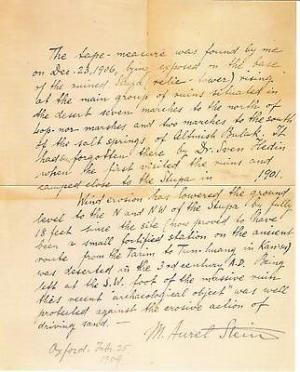 The tape-measure was found by me
on Dec. 23, 1906, lying exposed on the base
of the ruined Stupa (relic-tower) rising
at the main group of ruins situated in
the desert seven marches to the north of
Lop-nor marshes and two marches to the south
of the salt springs of Altmish Bulak. It
had been forgotten there by Dr. Sven Hedin
when he first visited the ruins and
camped close to the Stupa in 1901.
Wind erosion has lowered the ground
level to the N and NW of the Stupa by fully
18 feet since the site (now proved to have
been a small fortified station on the ancient
route from the Tarim to Tun-huang in Kansu)
was deserted in the 3rd century A.D. Being
left at the S.W. foot of the massive ruin
this recent "archaeological object" was well
protected against the erosive action of
driving sand. —
M. Aurel Stein
Oxford. Feb. 25
1909